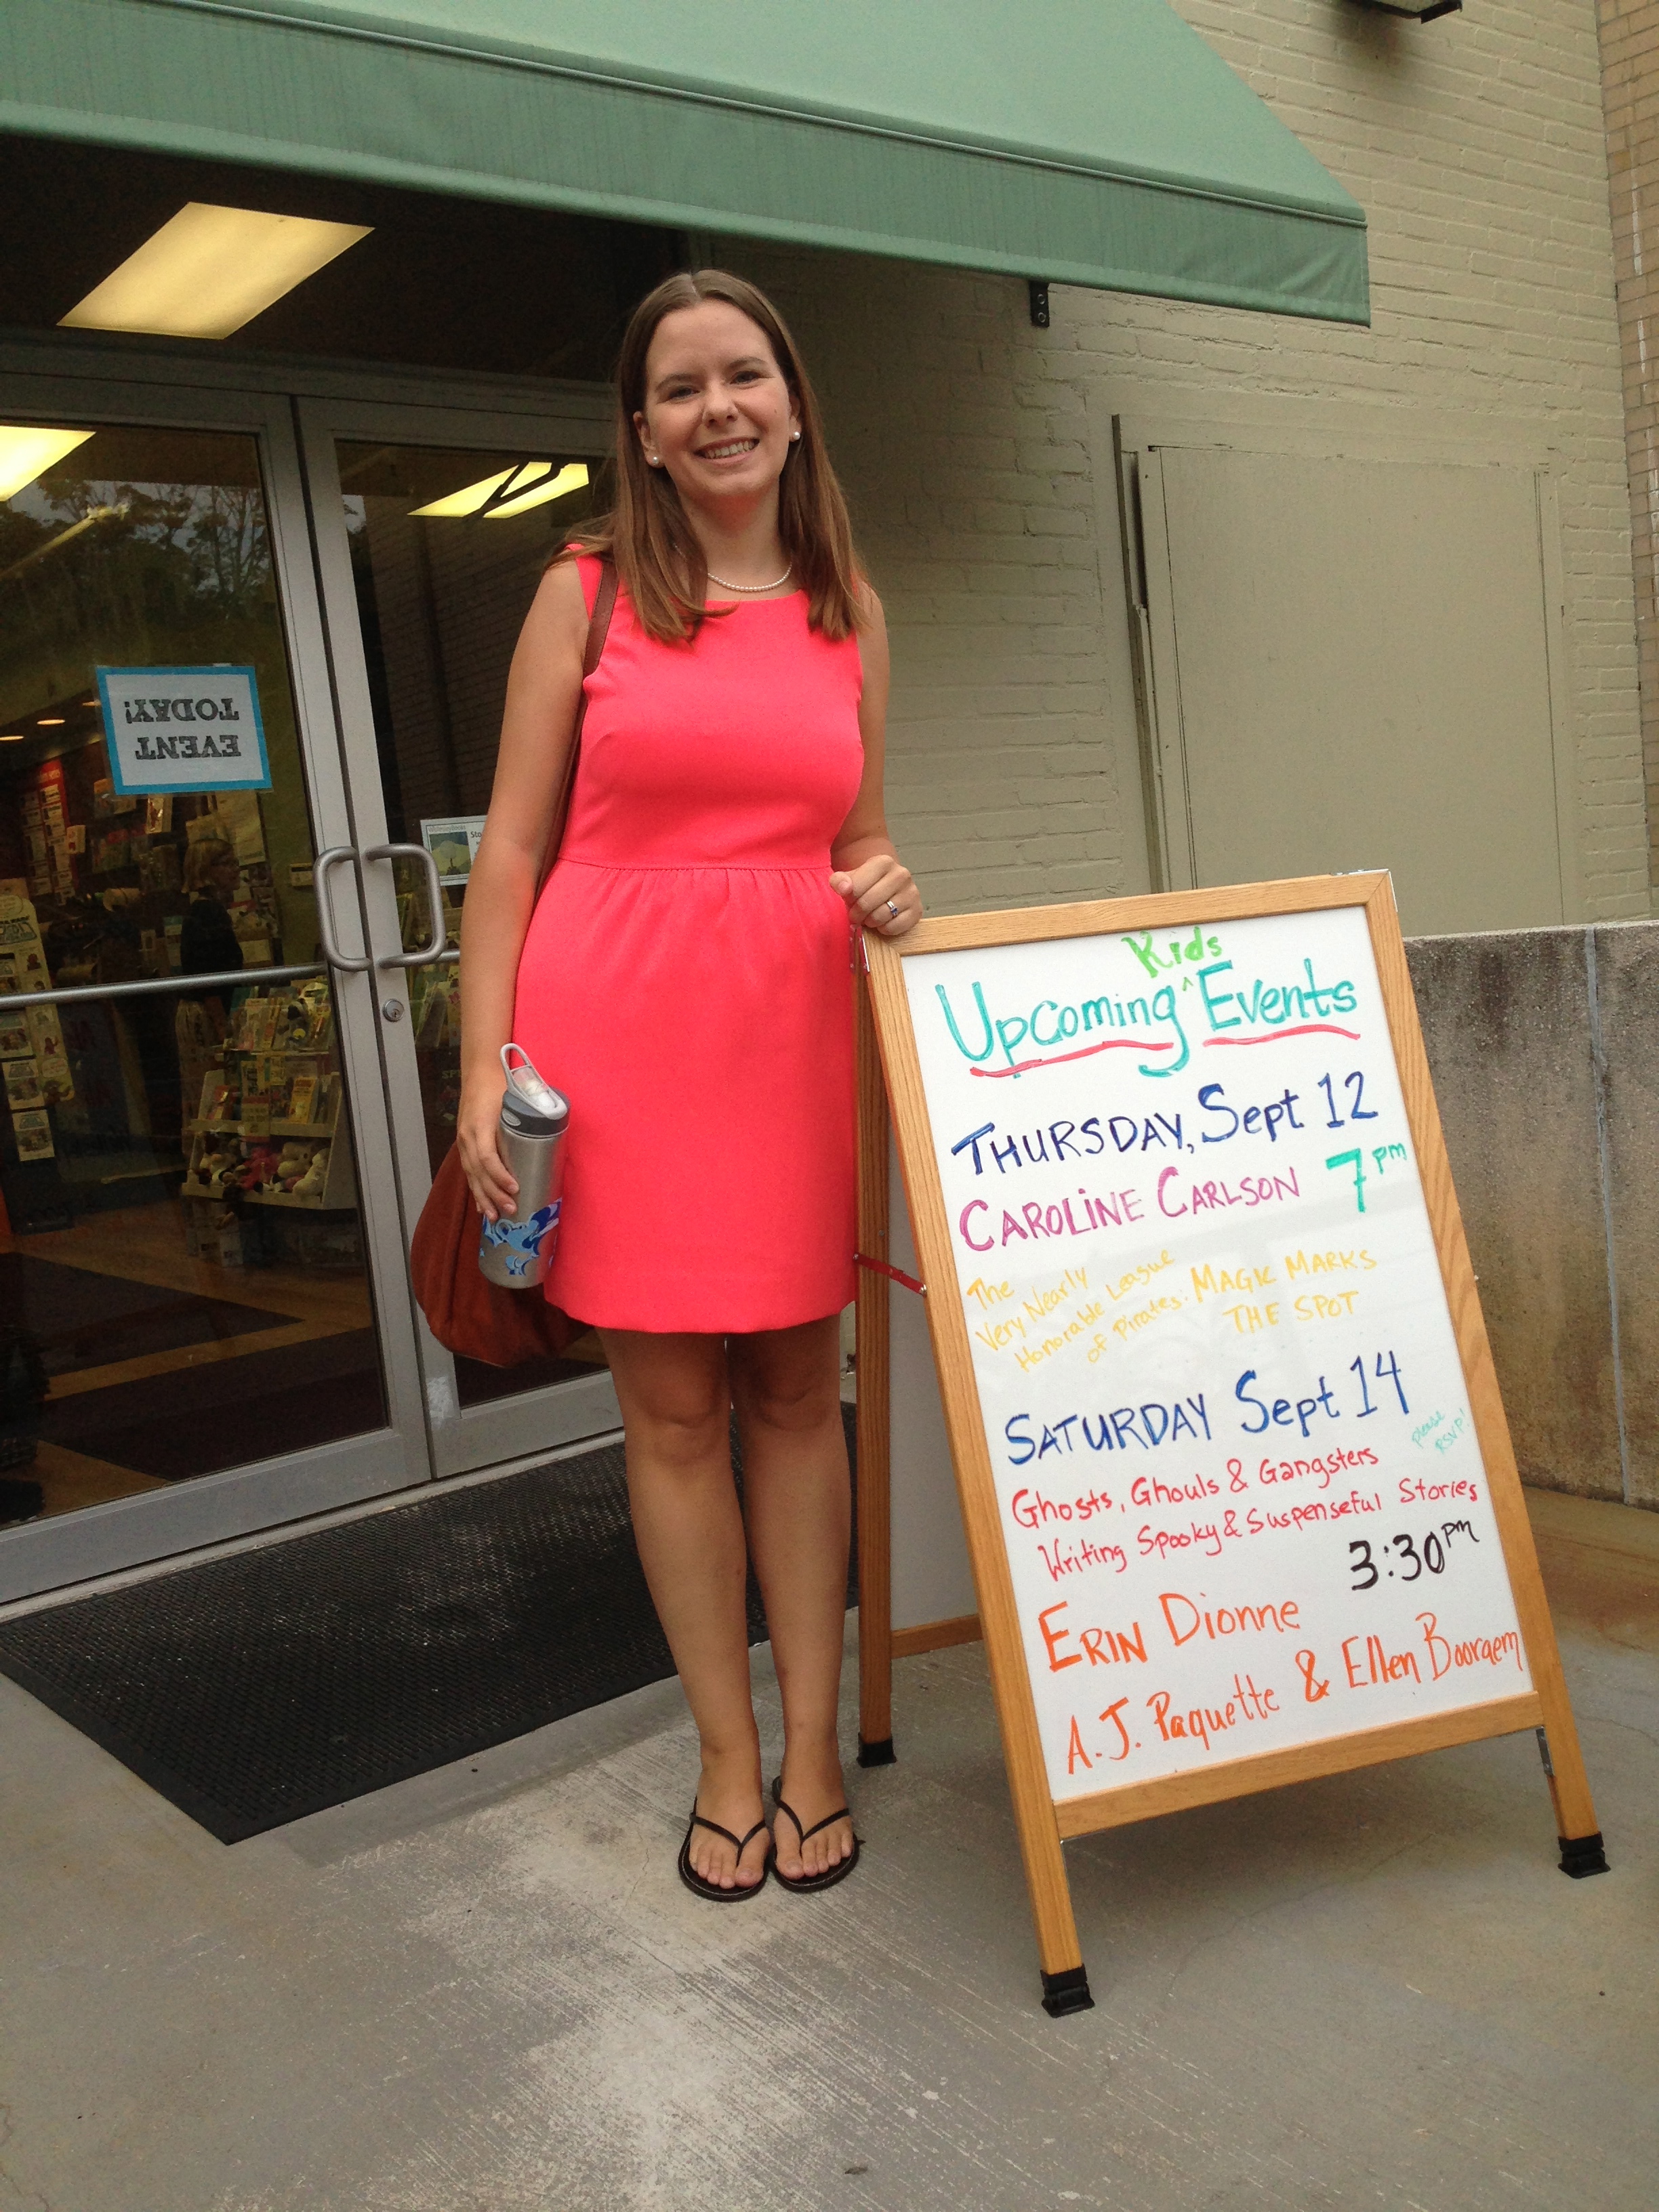 EVENT
TODAY!
Kids
Upcoming ^ Events
THURSDAY, Sept 12
CAROLINE CARLSON 7pm
The
Very Nearly
Honorable League
of Pirates: MAGIC MARKS
THE SPOT
SATURDAY Sept 14
please
RSVP!
Ghosts, Ghouls & Gangsters
Writing Spooky & Suspenseful Stories
3:30pm
ERIN Dionne
A.J. Paquette & Ellen Booraem